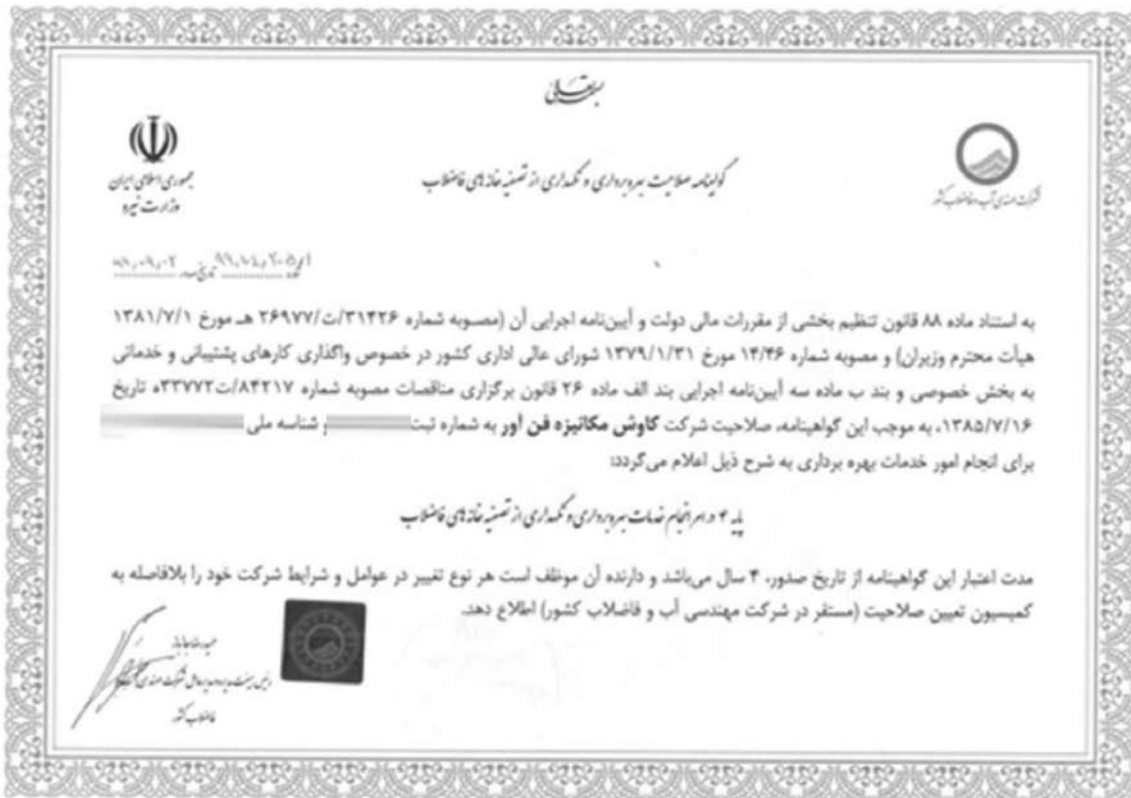 بسمه تعالی
جمهوری اسلامی ایران
وزارت نیرو
گواهینامه صلاحیت بهره برداری و نگهداری از تصفیه خانه های فاضلاب
شرکت مهندسی آب و فاضلاب کشور
به استناد ماده ۸۸ قانون تنظیم بخشی از مقررات مالی دولت و آیین‌نامه اجرایی آن (مصوبه شماره ۳۱۴۲۶/ت/۲۶۹۷۷ هـ مورخ ۱۳۸۱/۷/۱
هیأت محترم وزیران) و مصوبه شماره ۱۴/۴۶ مورخ ۱۳۷۹/۱/۳۱ شورای عالی اداری کشور در خصوص واگذاری کارهای پشتیبانی و خدماتی
به بخش خصوصی و بند ب ماده سه آیین‌نامه اجرایی بند الف ماده ۲۶ قانون برگزاری مناقصات مصوبه شماره ۸۴۲۱۷/ت۳۳۷۷۲ه تاریخ
۱۳۸۵/۷/۱۶، به موجب این گواهینامه، صلاحیت شرکت کاوش مکانیزه فن آور به شماره ثبت و شناسه ملی
برای انجام امور خدمات بهره برداری به شرح ذیل اعلام می‌گردد:
پایه ۴ در امر انجام خدمات بهره برداری و نگهداری از تصفیه خانه های فاضلاب
مدت اعتبار این گواهینامه از تاریخ صدور، ۴ سال می‌باشد و دارنده آن موظف است هر نوع تغییر در عوامل و شرایط شرکت خود را بلافاصله به
کمیسیون تعیین صلاحیت (مستقر در شرکت مهندسی آب و فاضلاب کشور) اطلاع دهد.
رئیس هیئت مدیره و مدیرعامل شرکت مهندسی آب و
فاضلاب کشور